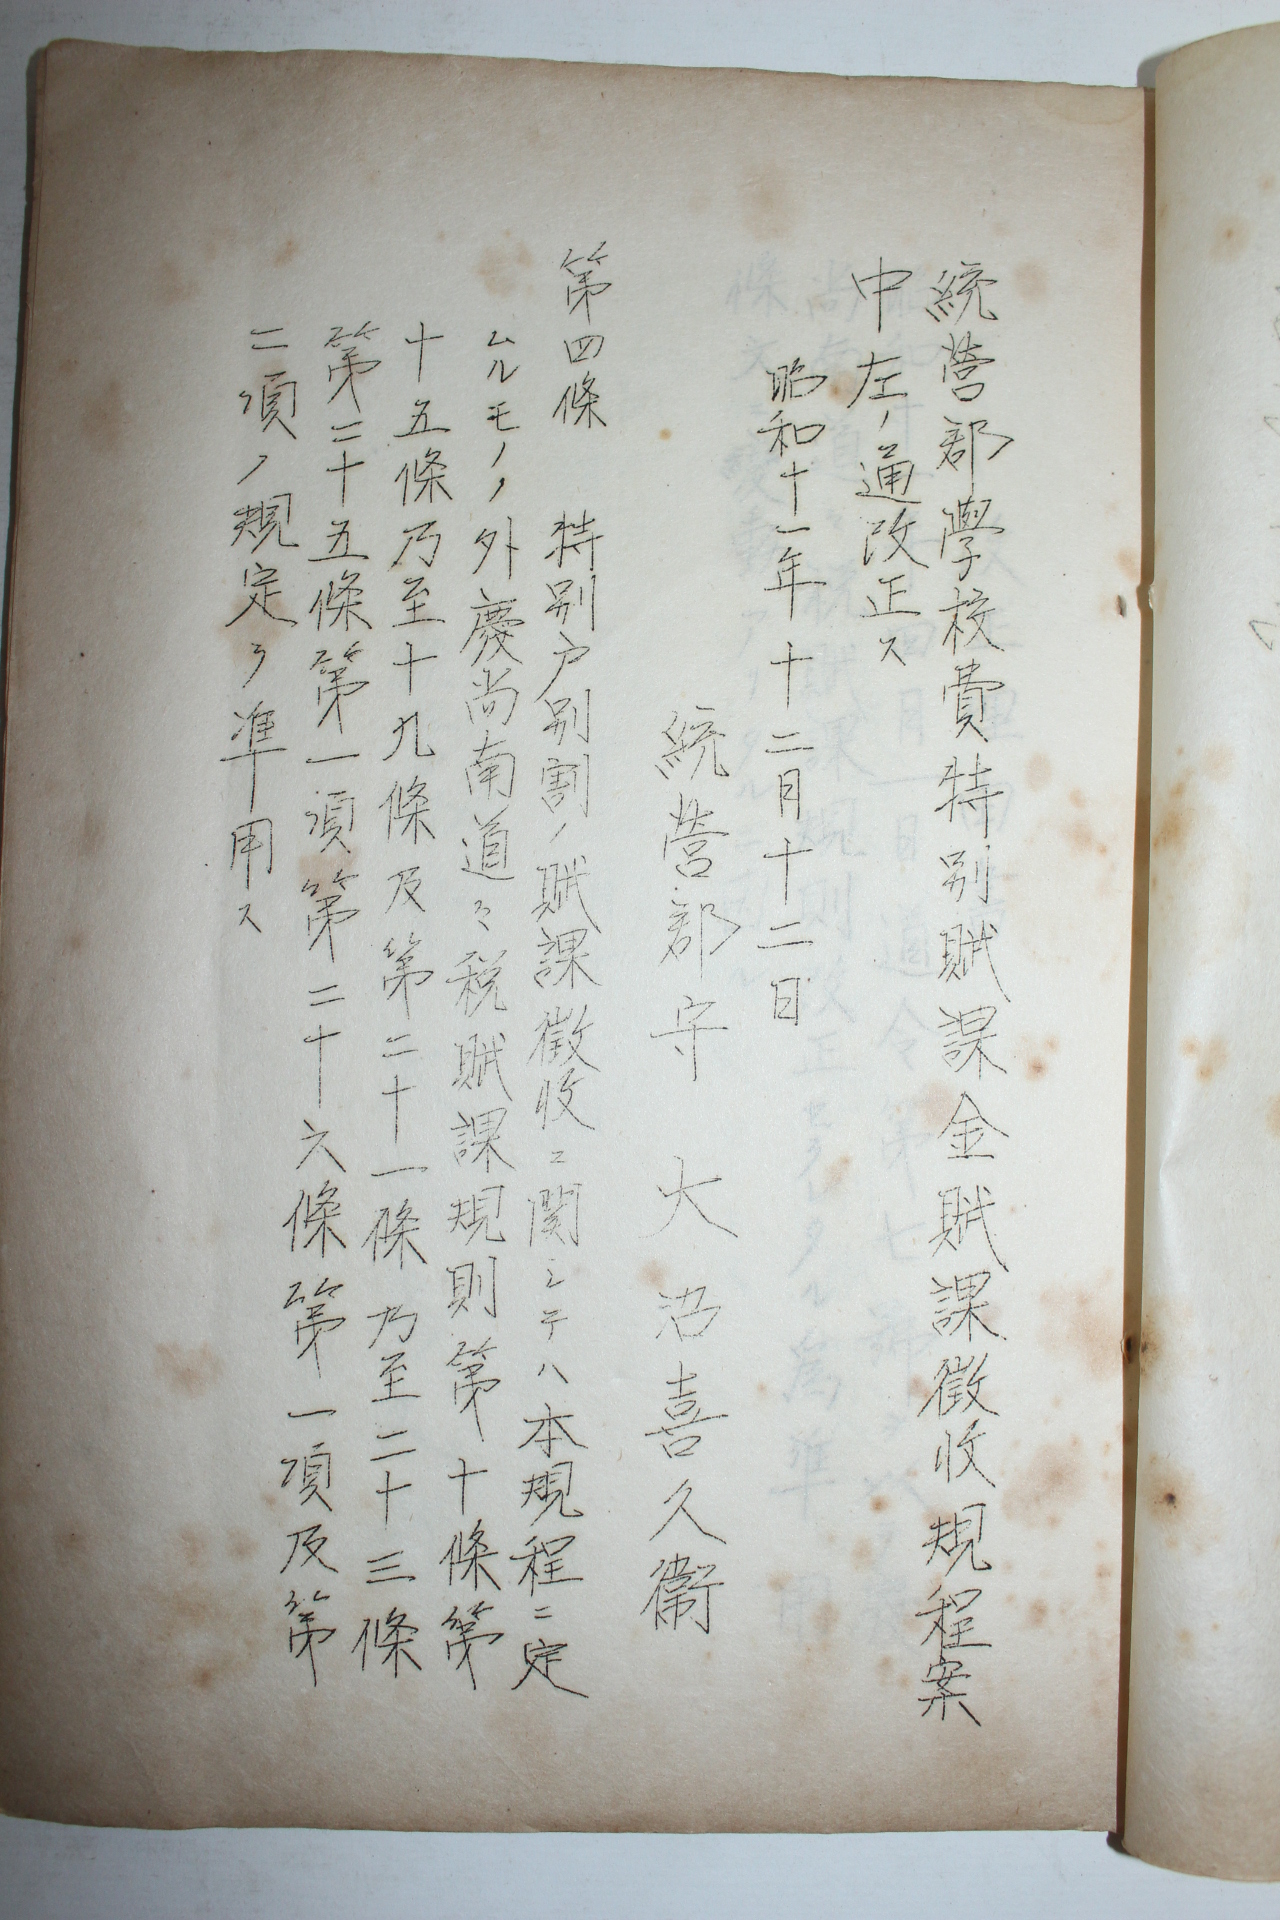 統営郡學校費特別賦課金賦課徴收規程案
中左ノ通改正ス
昭和十一年十二月十二日
統営郡守 大沼喜久衞
第四條 特別戸別割ノ賦課徴收ニ関シテハ本規程ニ定
ムルモノノ外慶尚南道々税賦課規則第十條第
十五條乃至十九條及第二十一條乃至二十三條
第二十五條第一項第二十六條第一項及第
二項ノ規定ヲ準用ス